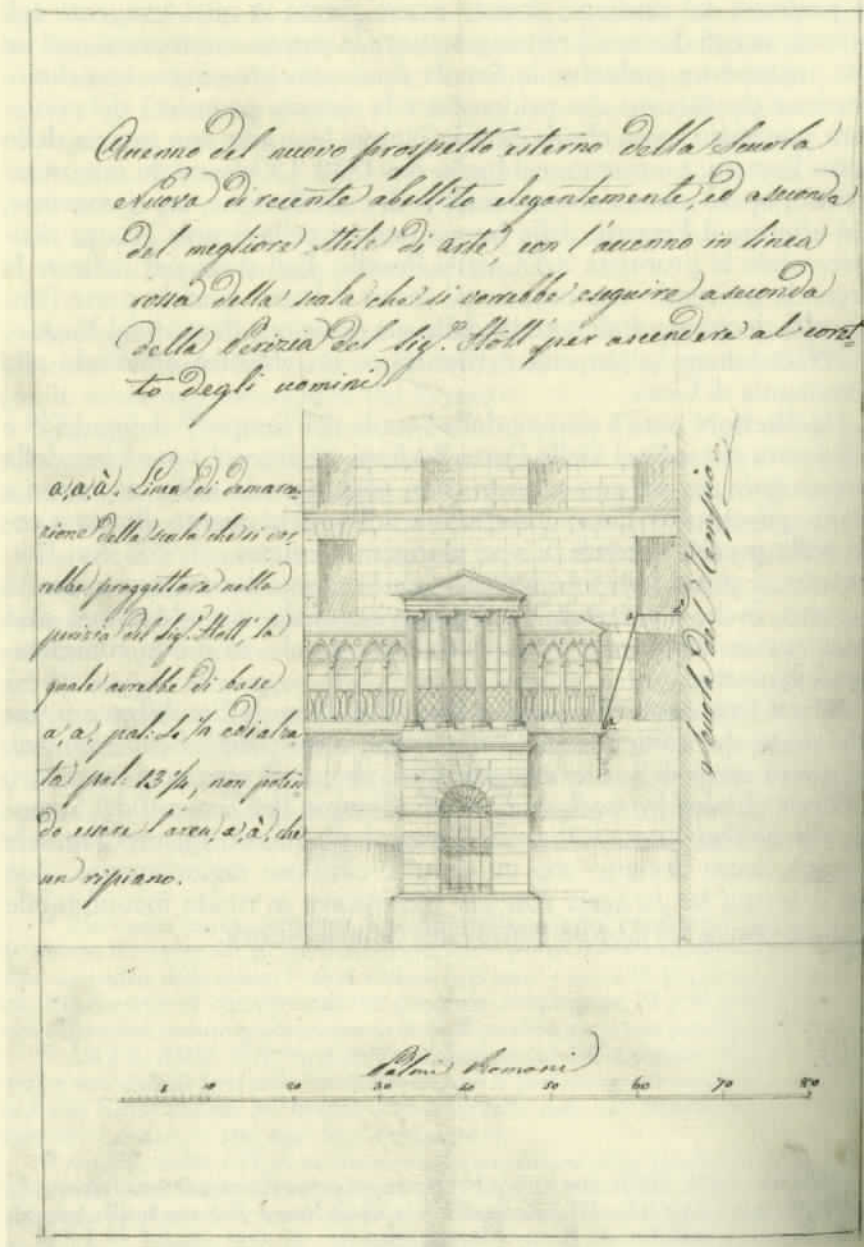 Accenno del nuovo prospetto esterno della Scuola
Nuova di recente abellito elegantemente, ed a seconda
del megliore Stile di arte, con l'accenno in linea
rossa della scala che si vorrebbe eseguire a seconda
della Perizia del Sig.r Stoll per ascendere al coret-
to degli uomini.
a, a, à. Linea di demarca-
zione della scala che si vor-
rebbe proggettare nella
perizia del Sig.r Stoll, la
quale avrebbe di base
a, a, pal: ed alza-
ta pal: 13 ¼, non poten-
do essere l'area, a, à, che
un ripiano.
a
a
Scuola del Tempio
Palmi Romani
5 10 20 30 40 50 60 70 80